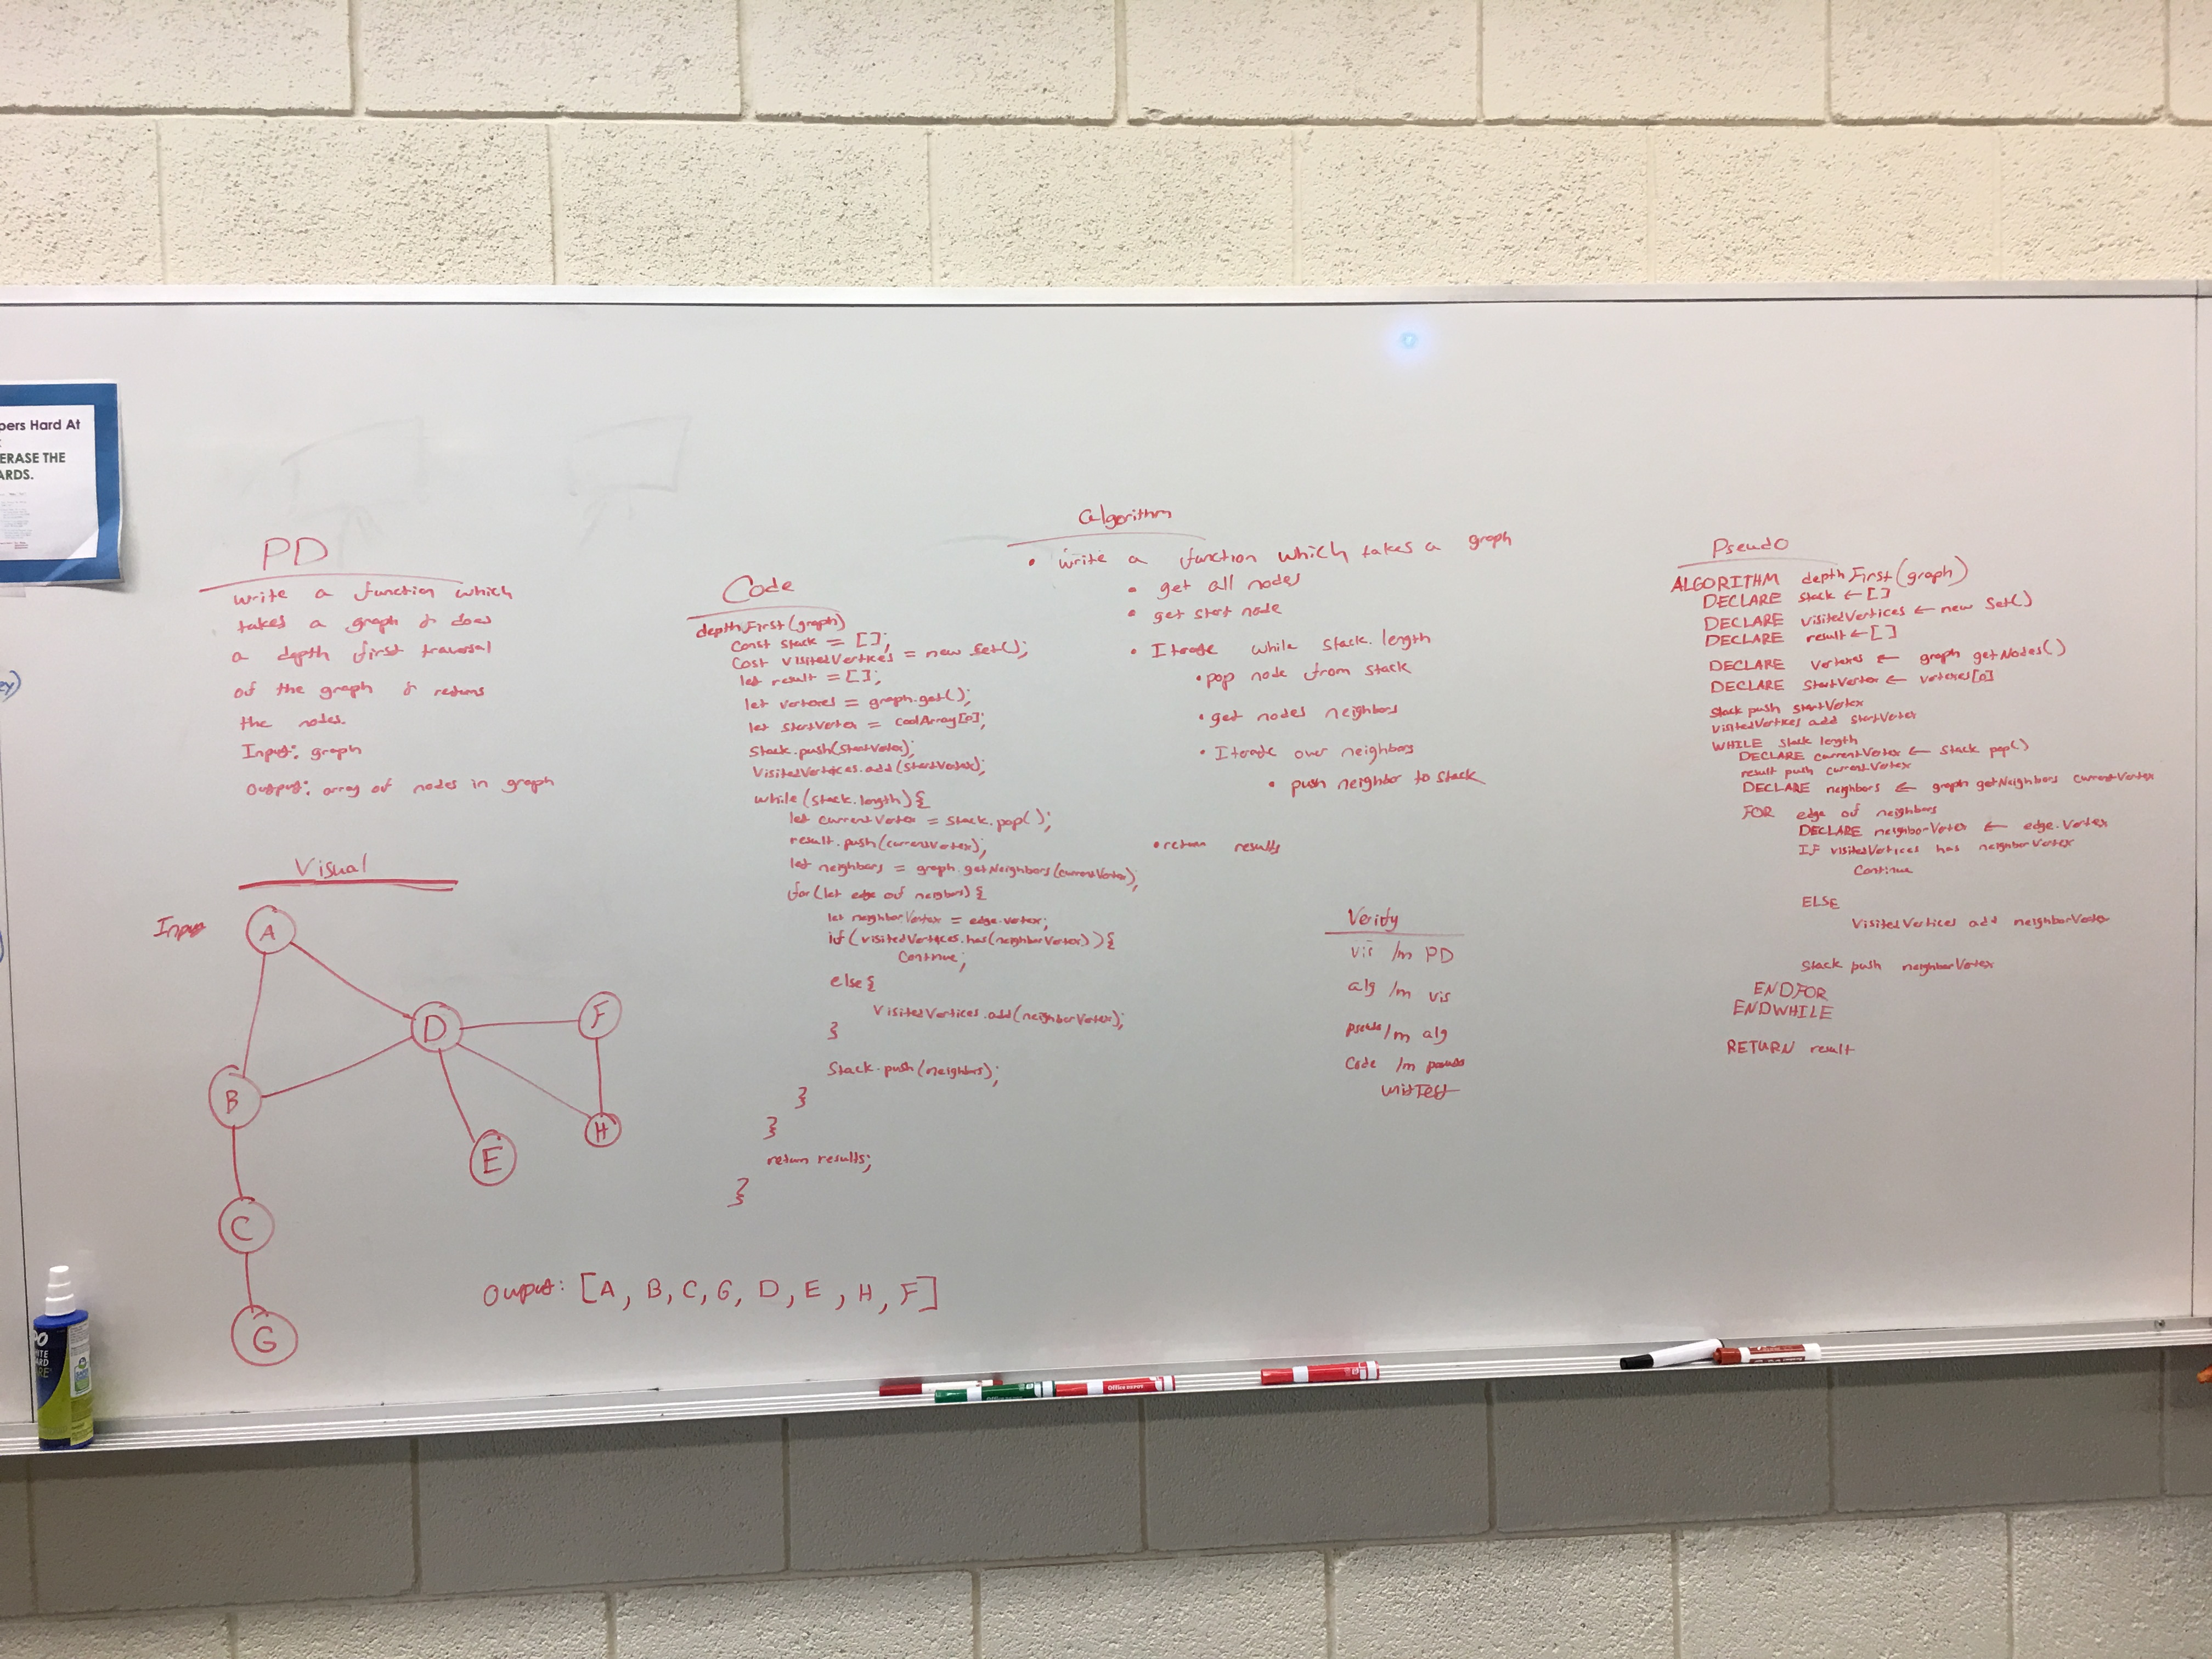 pers Hard At
ERASE THE
ARDS.
PD
write a function which
takes a graph & does
a depth first traversal
of the graph & returns
the nodes.
Input: graph
Output: array of nodes in graph
Visual
Input
A
D
F
B
H
E
C
G
Output: [A, B, C, G, D, E, H, F]
Code
depthFirst(graph)
Const stack = [];
Cost visitedVertices = new Set();
let result = [];
let vertexes = graph.get();
let startVertex = coolArray[0];
Stack.push(startVertex);
VisitedVertices.add(startVertex);
while (stack.length){
let currentVertex = stack.pop();
result.push(currentVertex);
let neighbors = graph.getNeighbors(currentVertex);
for(let edge of neigbors){
let neighborVertex = edge.vertex;
if(visitedVertices.has(neighborVertex)){
Continue;
else{
VisitedVertices.add(neighborVertex);
}
Stack.push(neighbors);
}
}
return results;
}
algorithm
• write a function which takes a graph
• get all nodes
• get start node
• Iterate while stack.length
• pop node from stack
• get nodes neighbors
• Iterate over neighbors
• push neighbor to stack
• return results
Verify
vis /m PD
alg /m vis
pseudo/m alg
Code /m
Pseudo
ALGORITHM depthFirst(graph)
DECLARE stack ← []
DECLARE visitedVertices ← new Set()
DECLARE result ← []
DECLARE vertexes ← graph getNodes()
DECLARE StartVertex ← vertexes[0]
Stack push startVertex
visitedVertices add startVertex
WHILE stack length
DECLARE currentVertex ← Stack pop()
result push currentVertex
DECLARE neighbors ← graph getNeighbors currentVertex
FOR edge of neighbors
DECLARE neighborVertex ← edge.Vertex
IF visitedVertices has neighborVertex
Continue
ELSE
VisitedVertices add neighborVertex
Stack push neighborVertex
ENDFOR
ENDWHILE
RETURN result
OFFICE DEPOT